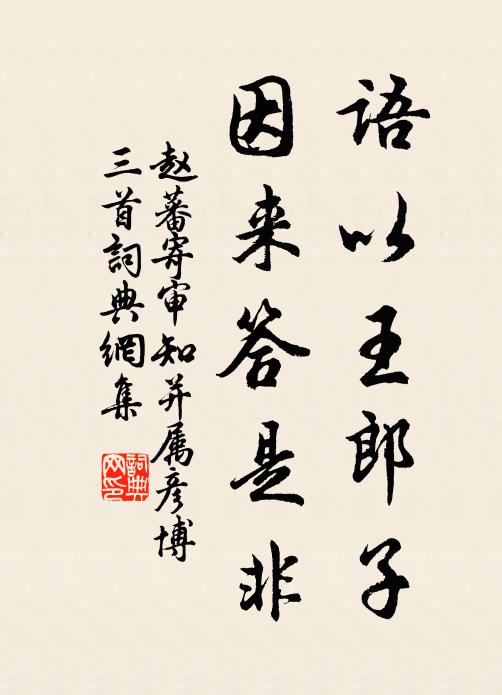 语以王郎子
因来答是非
赵蕃寄审知并属彦博
三首詞典網集
詞典
网印